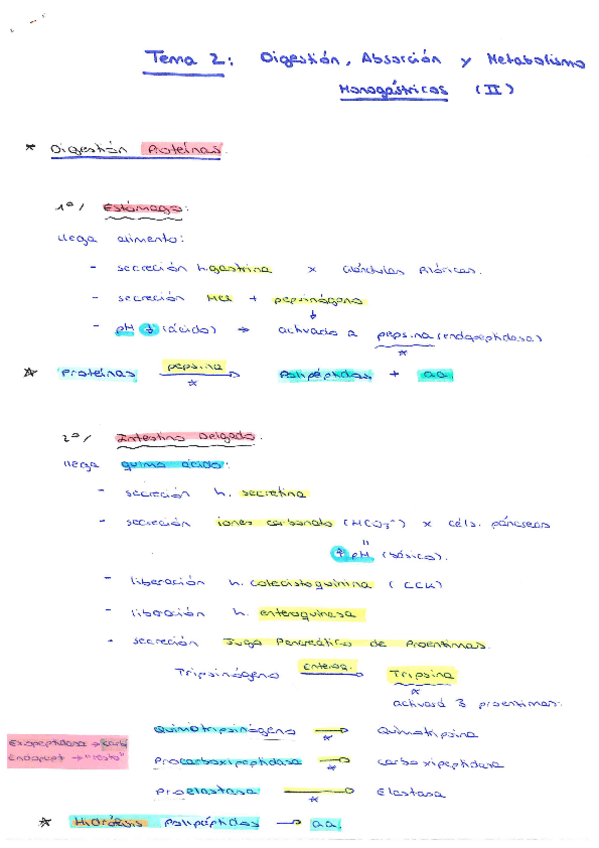 Tema 2: Digestión, Absorción y Metabolismo
Monogástricos (II)
* Digestión Proteínas.
1º/ Estómago:
llega alimento:
- secreción h.gastrina x Glándulas Pilóricas.
- secreción HCl + pepsinógeno
↓
- pH ↓ (ácido) → activado a pepsina (endopeptidasa)
*
* Proteínas pepsina → Polipéptidos + aa.
*
2º/ Intestino Delgado.
llega quimo ácido:
- secreción h. secretina
- secreción iones carbonato (HCO3-) x céls. páncreas
"
↑ pH (básico).
- liberación h. colecistoquinina (CCK)
- liberación h. enteroquinasa
- secreción Jugo Pancreático de Proenzimas.
Tripsinógeno Enteroq. → Tripsina
*
activará 3 proenzimas:
Quimotripsinógeno → Quimotripsina
*
Exopeptidasa → carb
Endopept → "resto"
Procarboxipeptidasa → carboxipeptidasa
*
Proelastasa → Elastasa
*
* Hidrólisis Polipéptidos → aa.